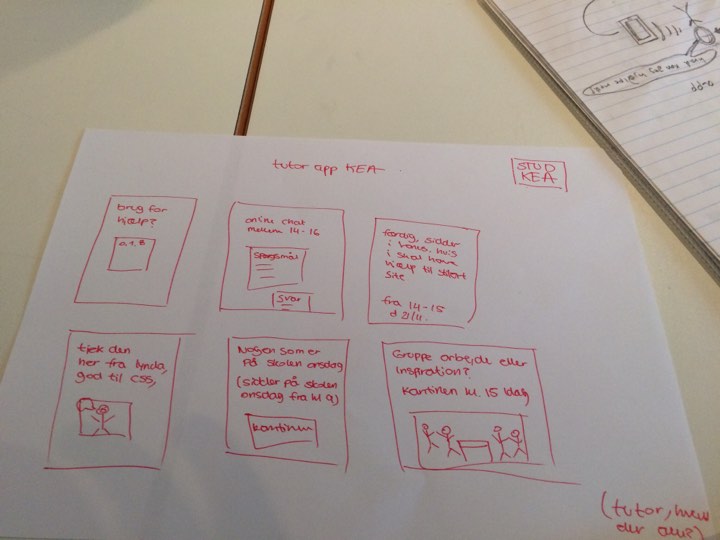 tutor app KEA
STUD
KEA
brug for
hjælp?
online chat
mellem 14-16
spørgsmål
svar
færdig, sidder
i
i skal have
hjælp til
site
fra 14-15
d 21/11.
tjek den
her fra lynda,
god til CSS,
Nogen som er
på skolen onsdag
(sidder på skolen
onsdag fra kl 9)
kantinen
Gruppe arbejde eller
inspiration?
kantinen kl. 15 idag
(tutor,
der